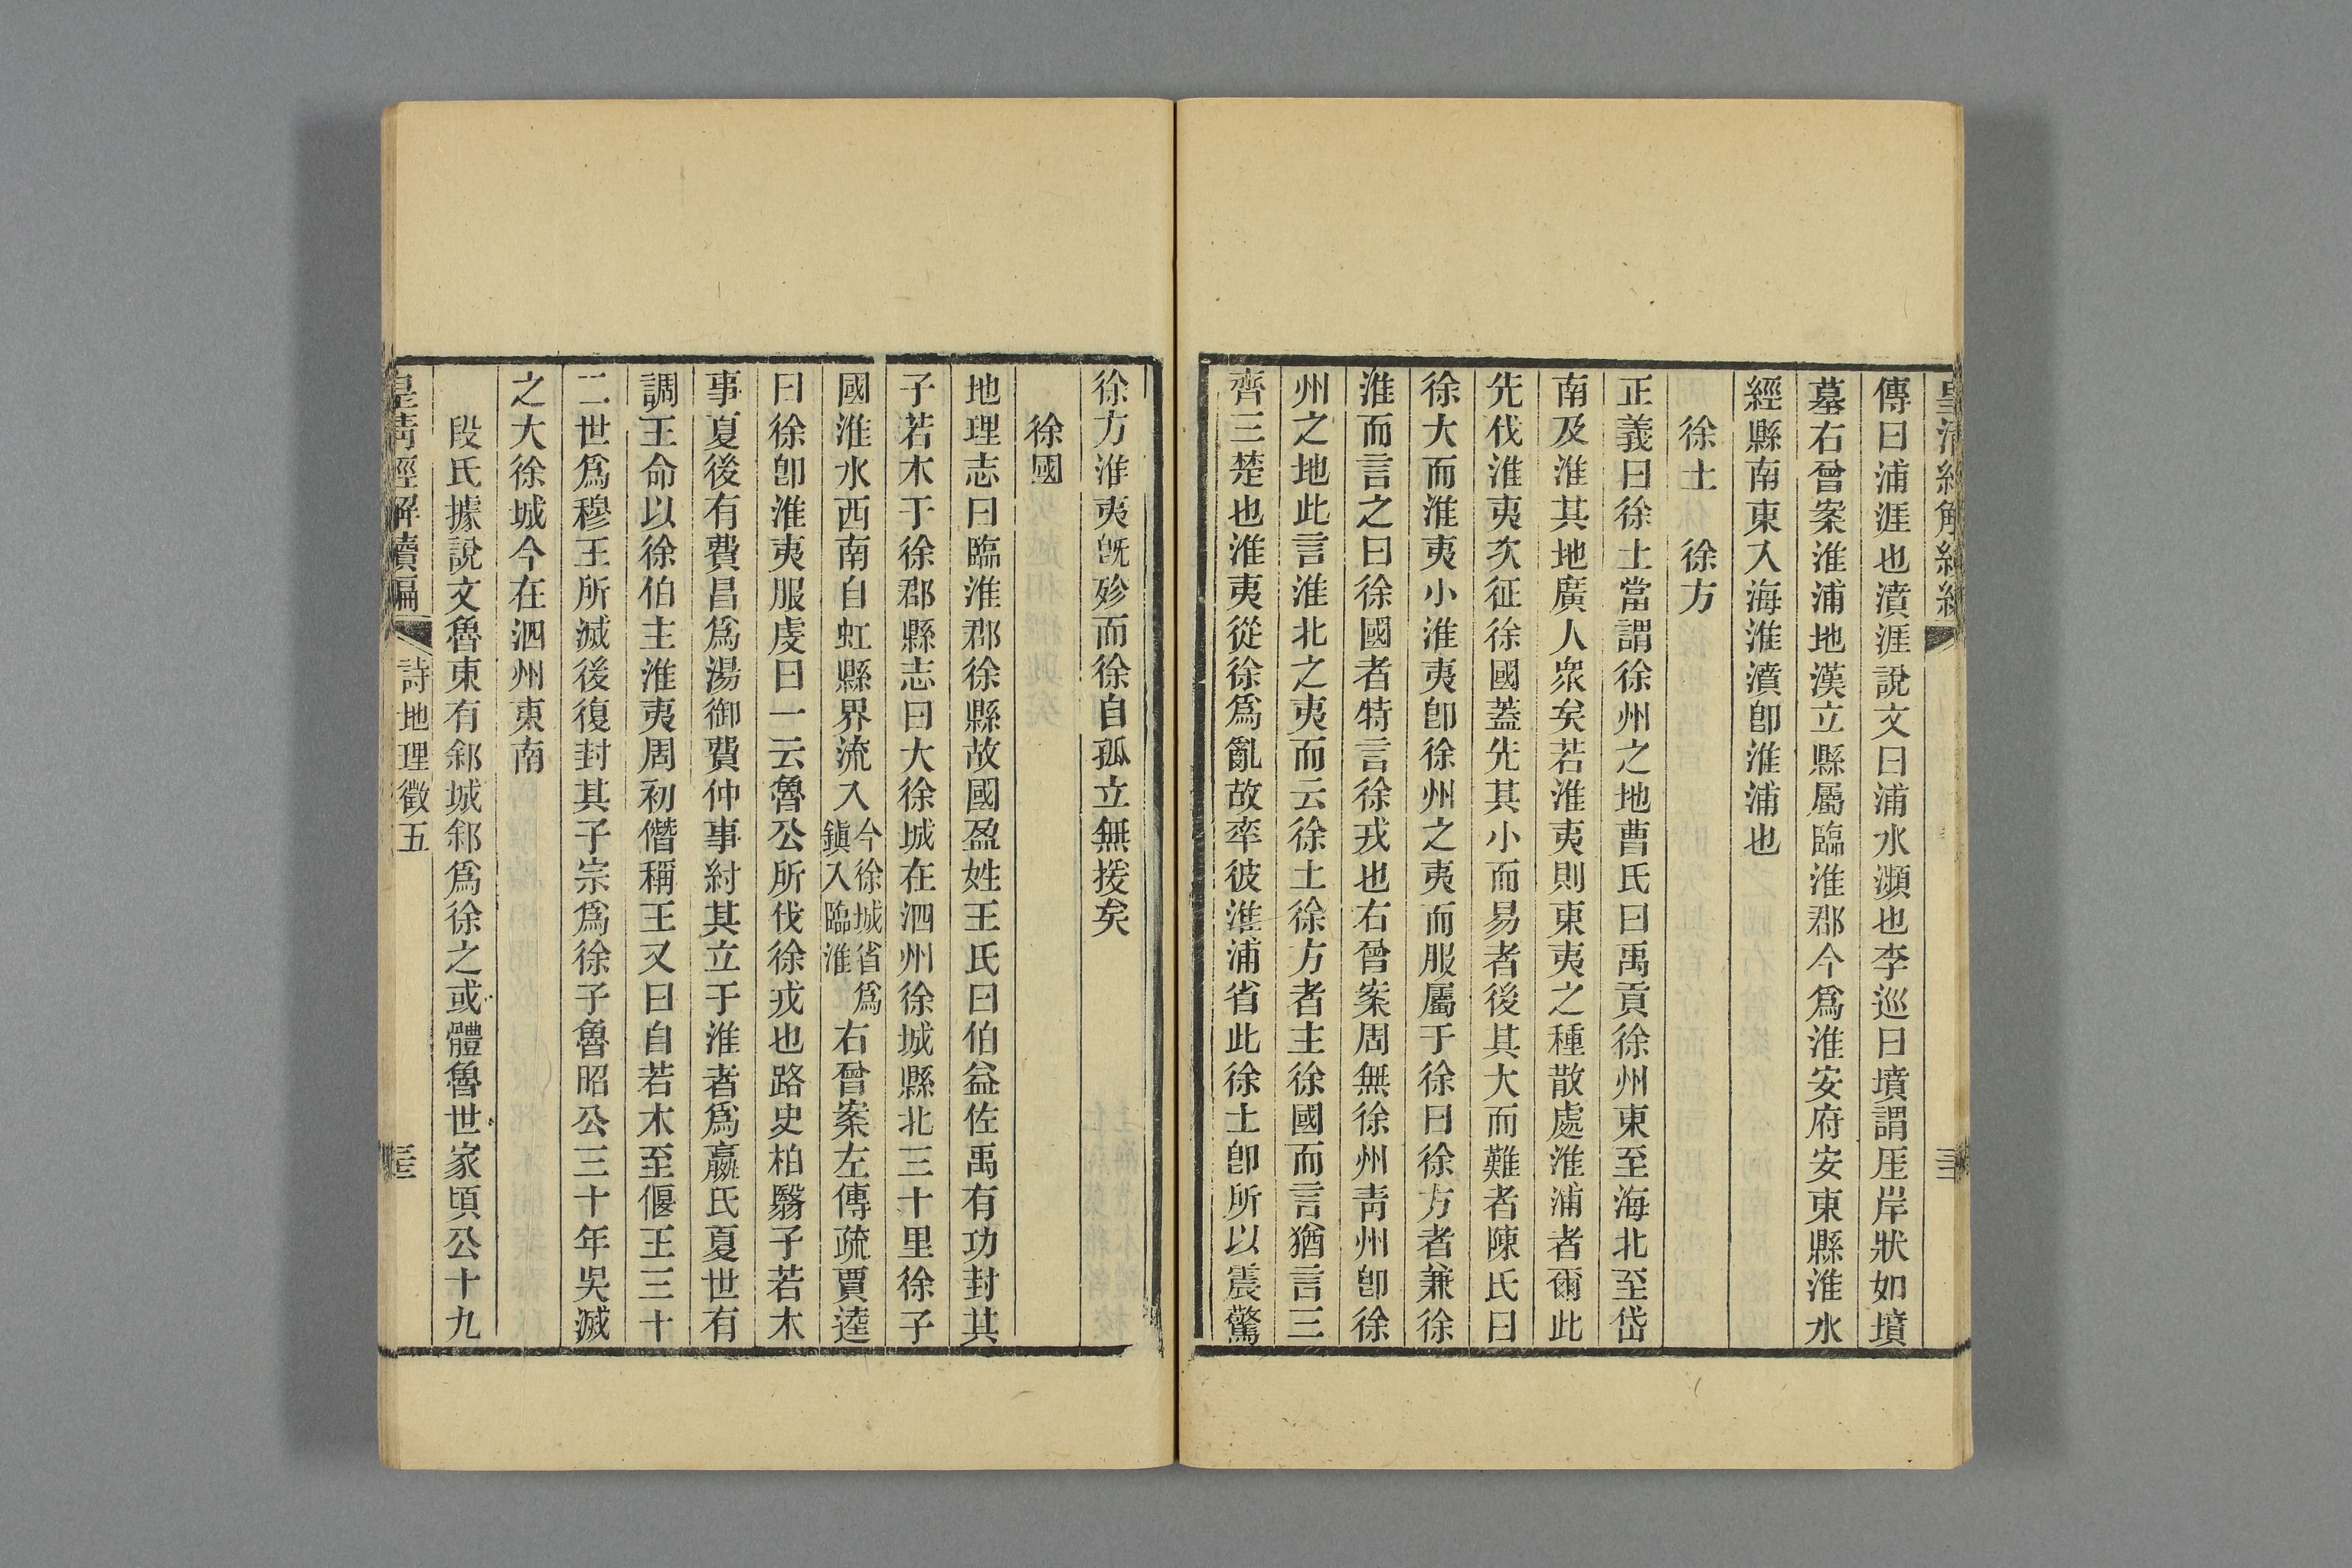 傳曰浦涯也濆涯說文曰浦水瀕也李巡曰墳謂厓岸狀如墳
墓右曾案淮浦地漢立縣屬臨淮郡今爲淮安府安東縣淮水
經縣南東入海淮濆卽淮浦也
徐土　徐方
正義曰徐土當謂徐州之地曹氏曰禹貢徐州東至海北至岱
南及淮其地廣人衆矣若淮夷則東夷之種散處淮浦者爾此
先伐淮夷次征徐國蓋先其小而易者後其大而難者陳氏曰
徐大而淮夷小淮夷卽徐州之夷而服屬于徐曰徐方者兼徐
淮而言之曰徐國者特言徐戎也右曾案周無徐州靑州卽徐
州之地此言淮北之夷而云徐土徐方者主徐國而言猶言三
齊三楚也淮夷從徐爲亂故率彼淮浦省此徐土卽所以震驚
徐方淮夷旣殄而徐自孤立無援矣
徐國
地理志曰臨淮郡徐縣故國盈姓王氏曰伯益佐禹有功封其
子若木于徐郡縣志曰大徐城在泗州徐城縣北三十里徐子
國淮水西南自虹縣界流入今徐城省爲鎭入臨淮右曾案左傳疏賈逵
曰徐卽淮夷服虔曰一云魯公所伐徐戎也路史柏翳子若木
事夏後有費昌爲湯御費仲事紂其立于淮者爲嬴氏夏世有
調王命以徐伯主淮夷周初僭稱王又曰自若木至偃王三十
二世爲穆王所滅後復封其子宗爲徐子魯昭公三十年吳滅
之大徐城今在泗州東南
段氏據說文魯東有䣄城䣄爲徐之或體魯世家頃公十九
皇淸經解續編　詩地理徵五